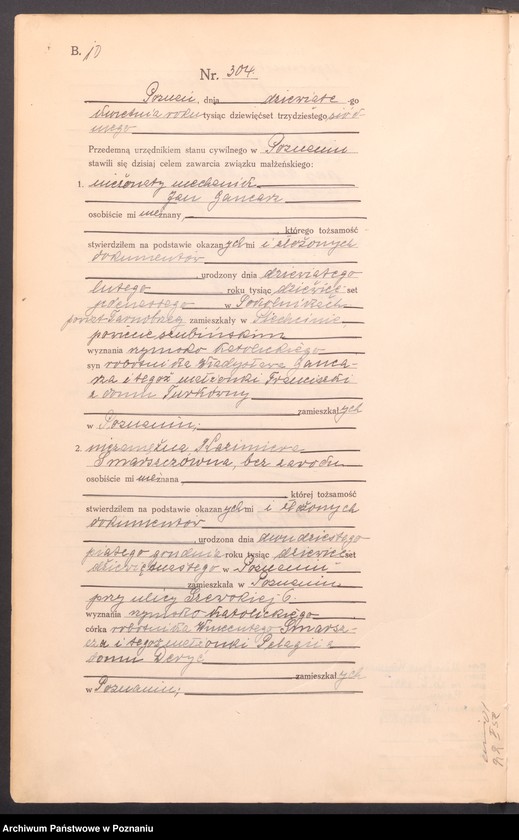 B. 10
Nr. 304
Poznań, dnia dziewiąte -go
kwietnia roku tysiąc dziewięćset trzydziestego siód-
mego
Przedemną urzędnikiem stanu cywilnego w Poznaniu
stawili się dzisiaj celem zawarcia związku małżeńskiego:
1. nieżonaty mechanik
Jan Gancarz
osobiście mi nieznany,
, którego tożsamość
stwierdziłem na podstawie okazanych mi i złożonych
dokumentów
, urodzony dnia dziewiątego
lutego roku tysiąc dziewięćset
jedenastego w Sokolnikach
powiat Tarnobrzeg, zamieszkały w
powiecie szubińskim
wyznania rzymsko katolickiego
syn robotnika Władysława Ganca-
rza i tegoż małżonki Franciszki
z domu Turkówny
zamieszkałych
w Poznaniu;
2. niezamężna Kazimiera
Smarszczówna, bez zawodu
osobiście mi nieznana
, której tożsamość
stwierdziłem na podstawie okazanych mi i złożonych
dokumentów
, urodzona dnia dwudziestego
piątego grudnia roku tysiąc dziewięćset
dziewiętnastego w Poznaniu
zamieszkała w Poznaniu
przy ulicy Szewskiej 6.
wyznania rzymsko katolickiego
córka robotnika Wincentego Smarsz-
cza i tegoż małżonki Pelagii z
domu
zamieszkałych
w Poznaniu;
Archiwum Państwowe w Poznaniu
szukajwarchiwach.gov.pl